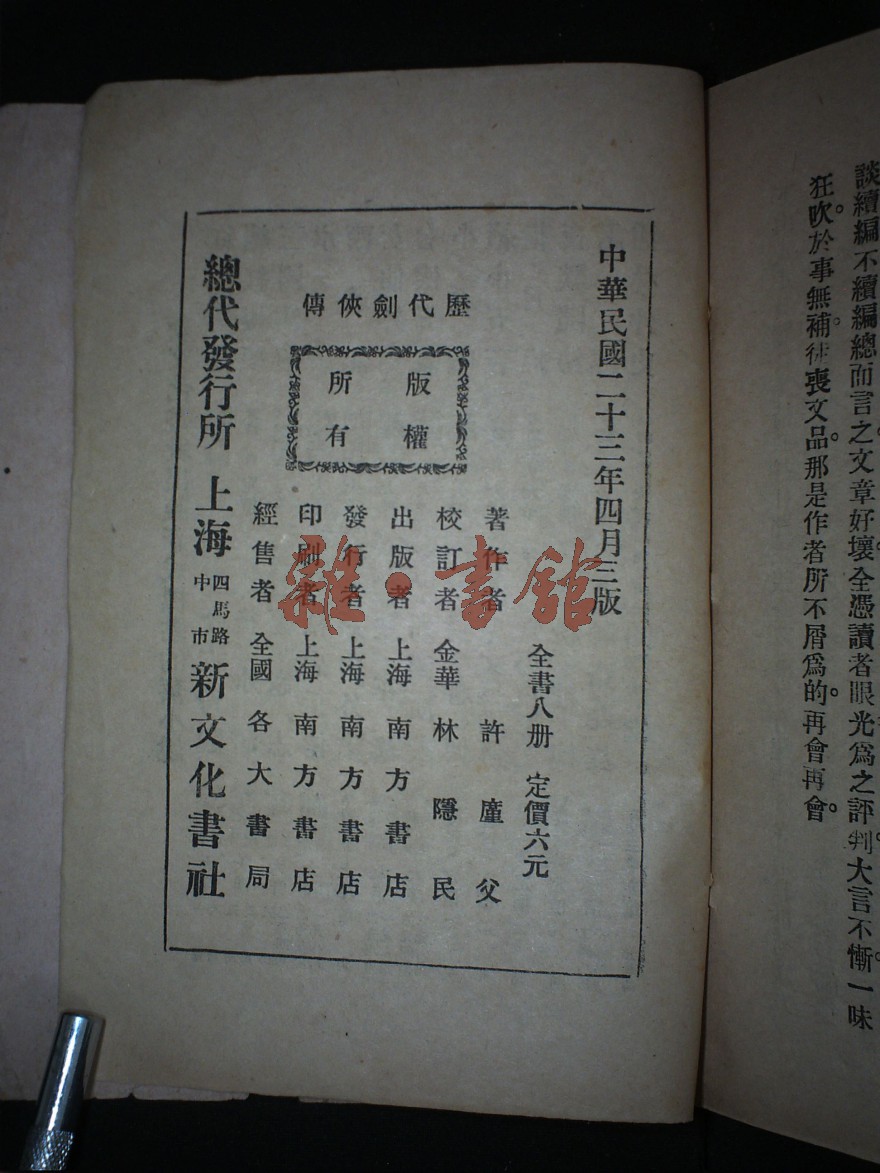 談續編不續編總而言之文章好壞全憑讀者眼光爲之評判大言不慚一味
狂吹於事無補徒喪文品那是作者所不屑爲的再會再會
中華民國二十三年四月三版
歷代劍俠傳
版權
所有
全書八册 定價六元
著作者 許廑父
校訂者 金華林隱民
出版者 上海南方書店
發行者 上海南方書店
印刷者 上海南方書店
經售者 全國各大書局
總代發行所 上海 四馬路中市 新文化書社
雜·書館